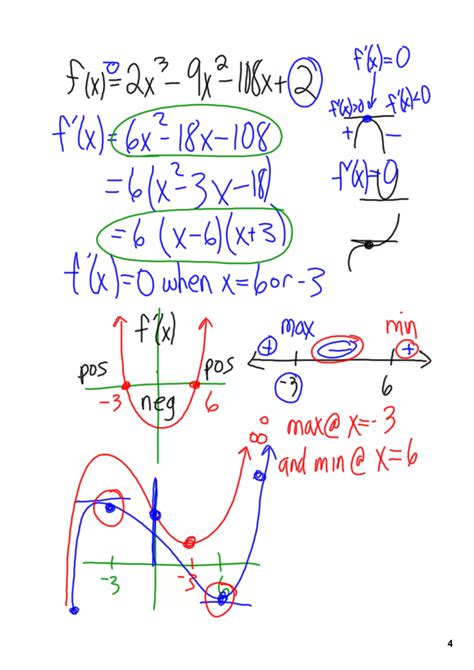 f(x)=2x³-9x²-108x+2
f'(x)=0
f'(x)>0 f'(x)<0
+ -
f'(x)=6x²-18x-108
=6(x²-3x-18)
f'(x)=0
=6(x-6)(x+3)
f'(x)=0 when x=6 or -3
f'(x)
pos pos
-3 neg 6
max min
+ - +
-3 6
max@ x=-3
and min@ x=6
-3 -3 6
4